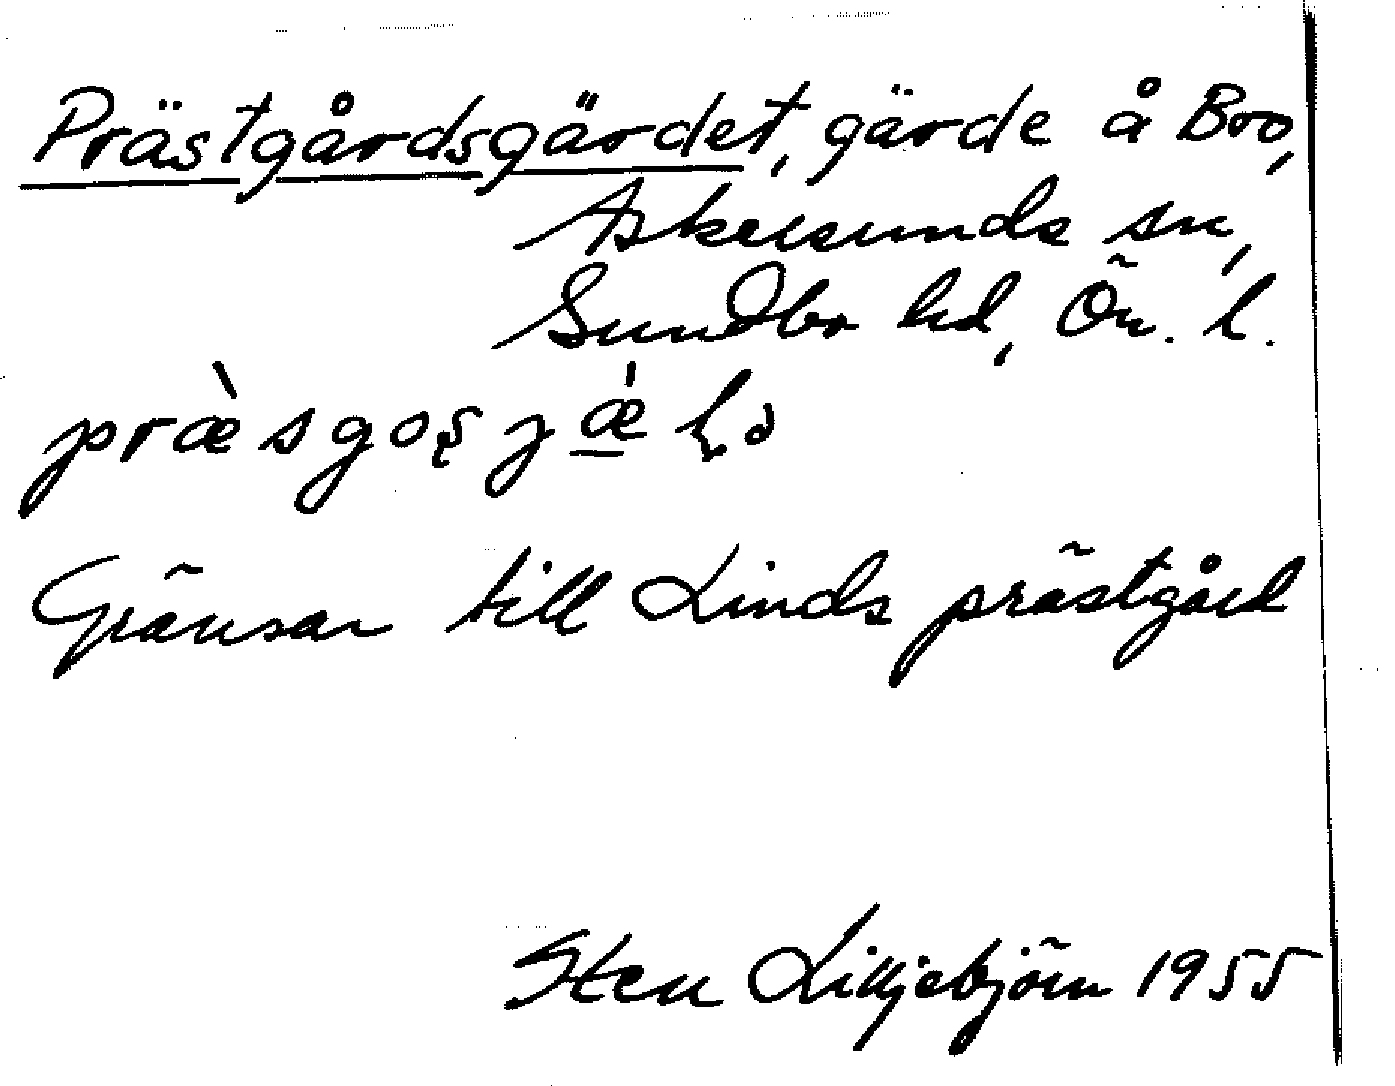 Prästgårdsgärdet, gärde å Bro,
Askersunds sn,
Sundbo hd, Ör. l.
Gränsar till Linds prästgård
Sten Lilljebjörn 1955